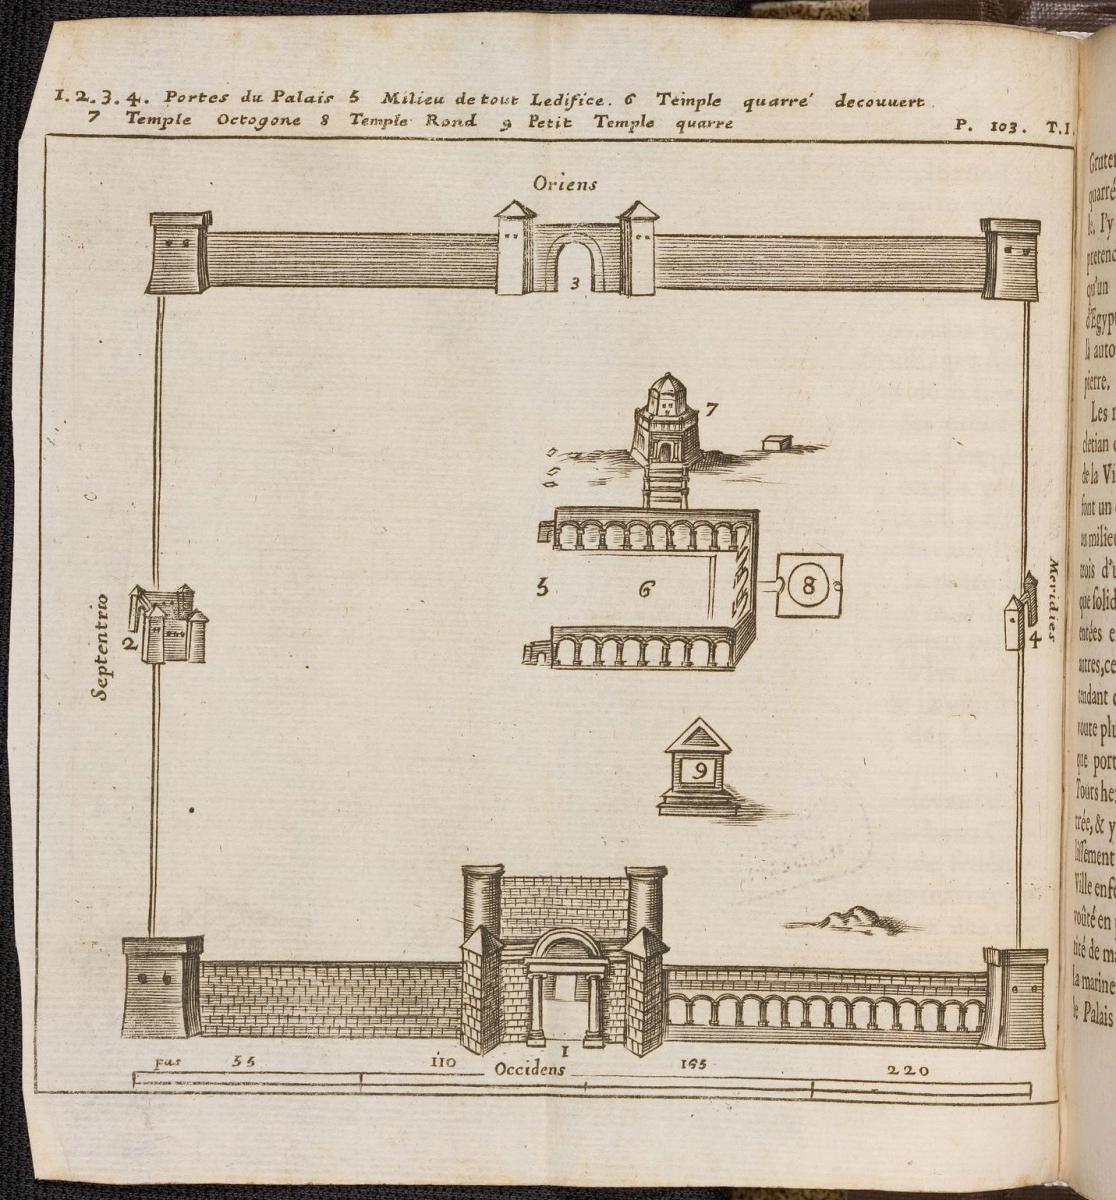 1. 2. 3. 4. Portes du Palais 5 Milieu de tout Ledifice. 6 Temple quarré decouuert.
7 Temple Octogone 8 Temple Rond 9 Petit Temple quarre
P. 103. T.I.
Oriens
3
7
5
6
8
Septentrio
2
Meridies
4
9
1
pas 55 110 165 220
Occidens
quarré
le. l'y
qu'un
d'Egypt
pierre.
Les
cletian
de la Vi
font un
au milieu
que solid
autres, ce
voute plu
que port
Ville enf
voûté en
tité de ma
la marine
le Palais